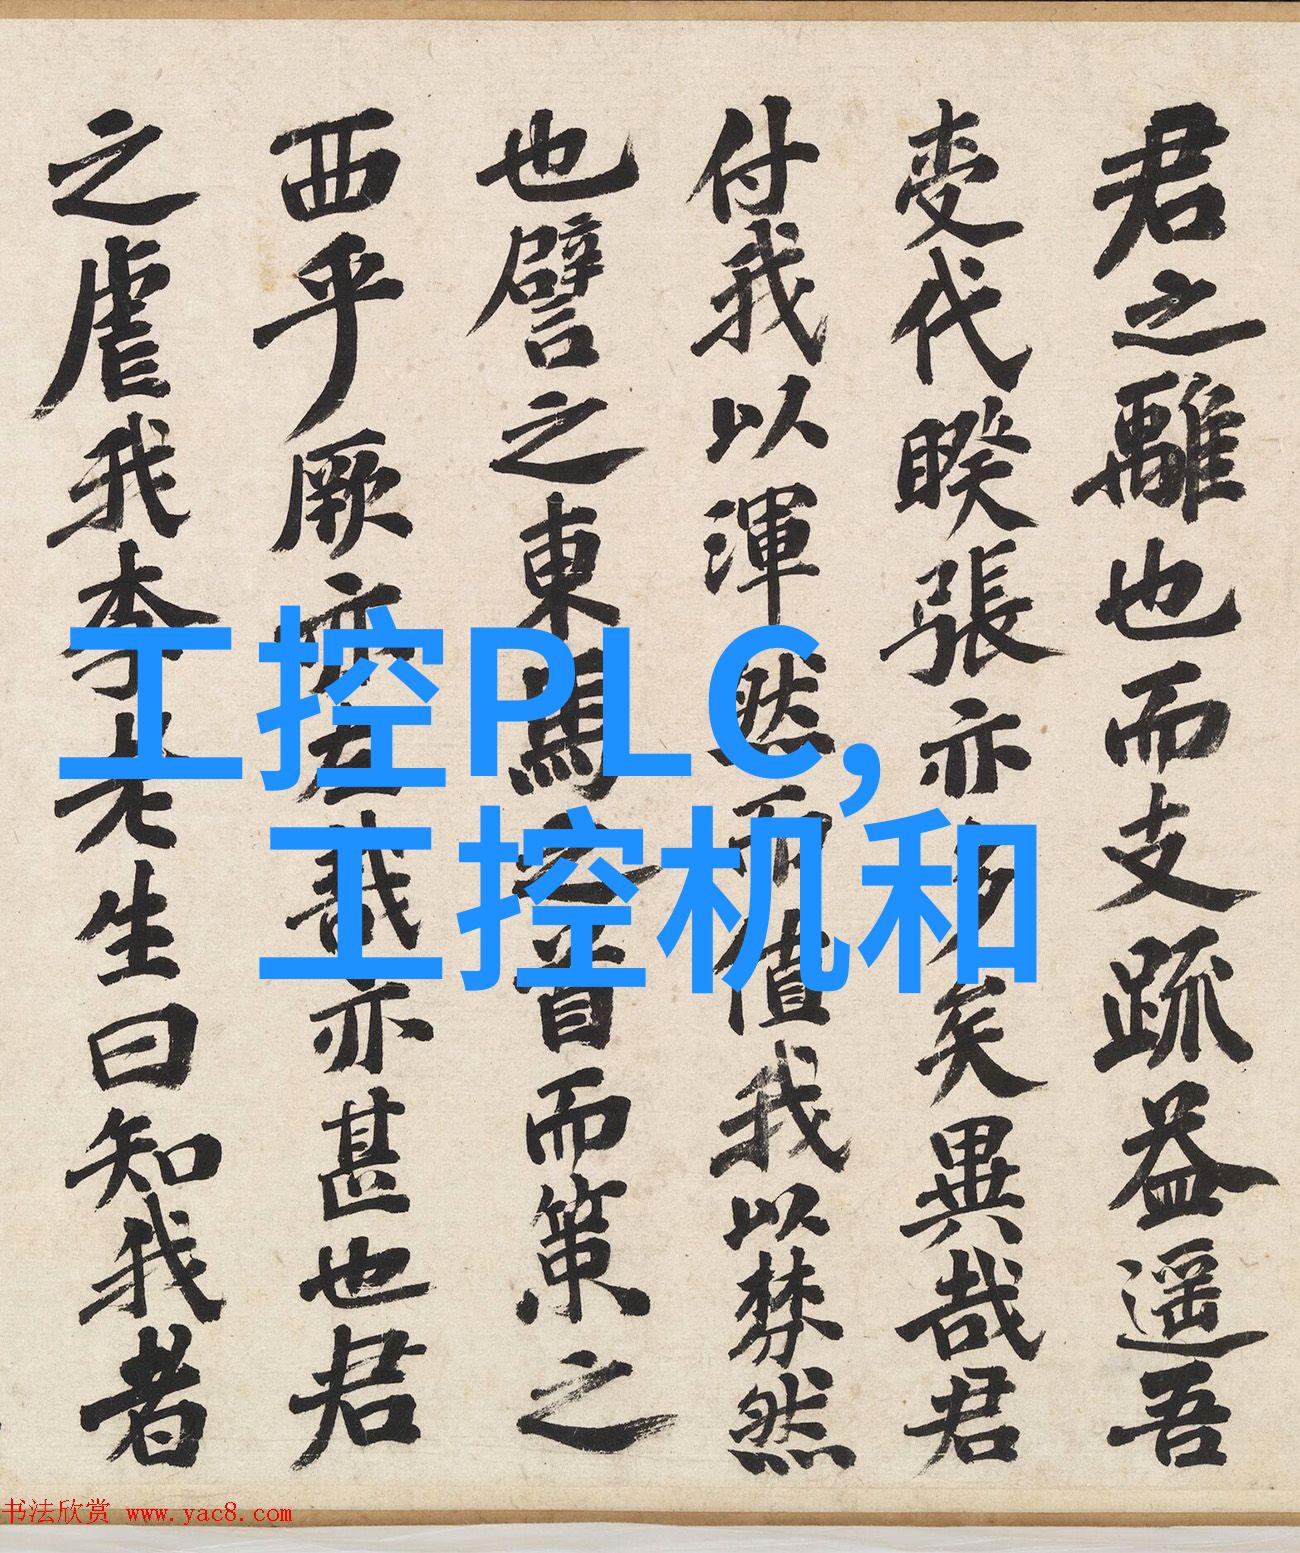 君之離也而支疏益遥吾
代暌張亦多矣異哉君
付我以渾然而值我以棼然
也譬之東馬之首而策之
西乎厥亦左哉亦甚也君
之虐我李先生曰知我者
工控PLC,
工控机和
书法欣赏 www.yac8.com